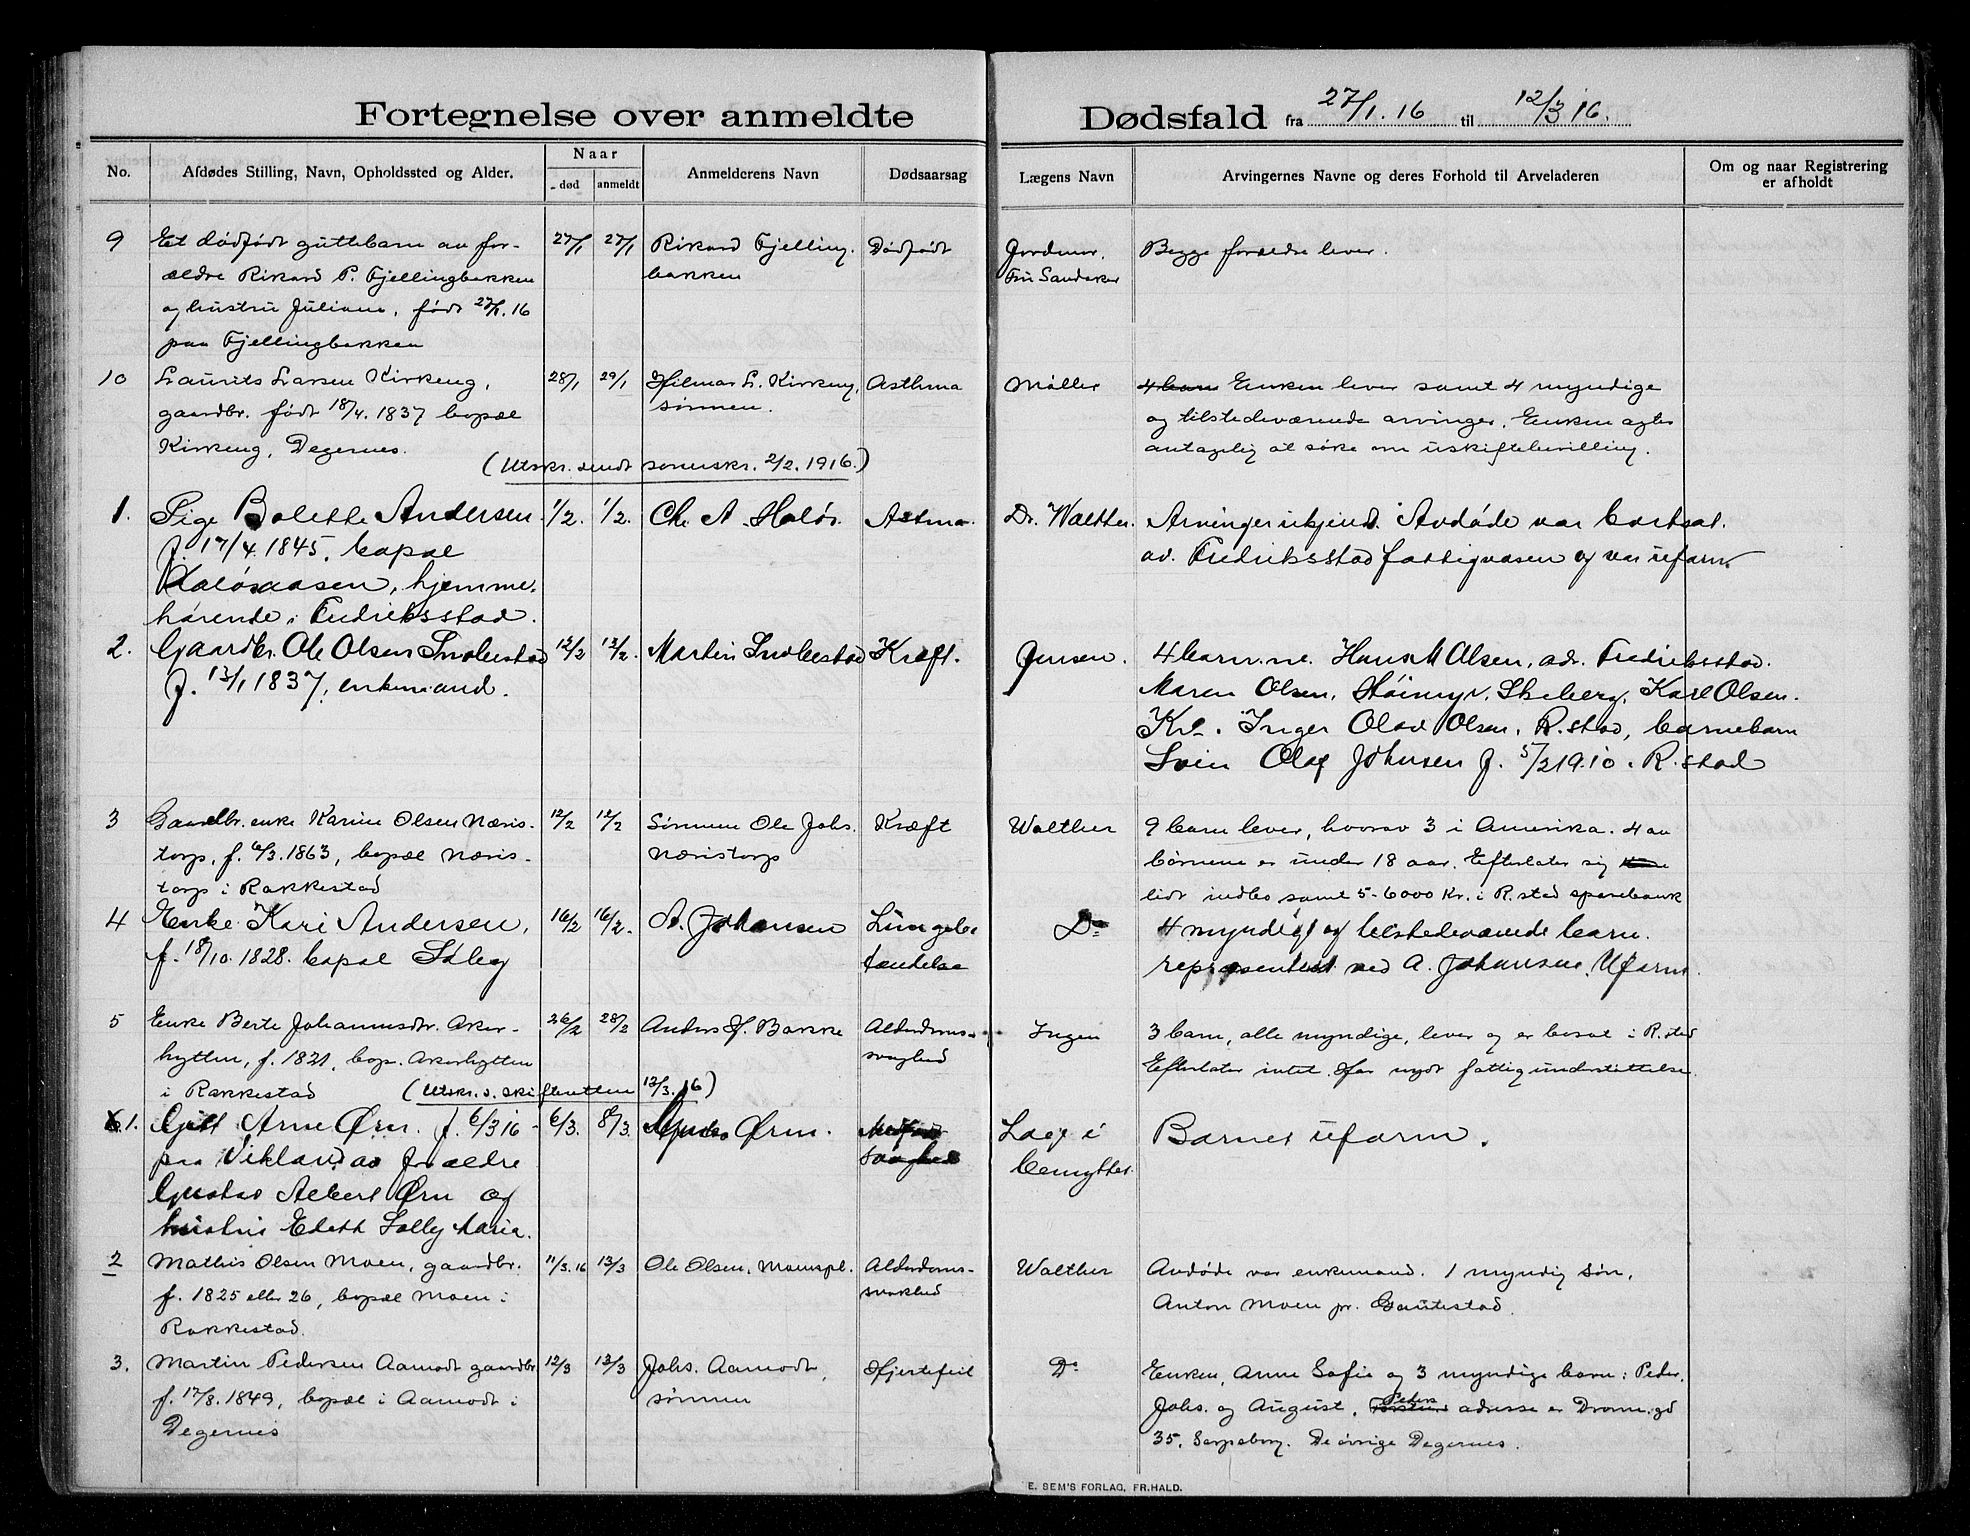 Fortegnelse over anmeldte Dødsfald fra 27/1. 16 til 12/3 16.
No. Afdødes Stilling, Navn, Opholdssted og Alder. Naar død anmeldt Anmelderens Navn Dødsaarsag Lægens Navn Arvingernes Navne og deres Forhold til Arveladeren Om og naar Registrering er afholdt
9 Et dødfødt guttebarn av for- 27/1 27/1 Rikard Fjelling. Dødfødt Jordmor. Begge forældre lever.
ældre Rikard P. Fjellingbakken bakken Fru Sandaker
og hustru Juliane, født 27/1. 16
paa Fjellingbakken
10 Laurits Larsen Kirkeng, 28/1 29/1 Hilmar L. Kirkeng, Asthma Møller 4 barn Enken lever samt 4 myndige
gaardbr. født 18/4. 1837 bopæl sønnen. og tilstedeværende arvinger. Enken agter
Kirkeng, Degernes. antagelig at søke om uskiftebevilling.
(Utskr. sendt sorenskr. 2/2. 1916.)
1. Pige Bolette Andersen 1/2. 1/2. Chr. A. Holøs. Astma. Dr. Walther. Arvinger ukjend. Avdøde var bortsat
f. 17/4 1845. bopæl av Fredriksstad fattigvæsen og var uform.
Holøsaasen, hjemme-
hørende i Fredriksstad.
2. Gaardbr. Ole Olsen 12/2 12/2. Martin Kræft. Jensen. 4 barn: ne. Hans M Olsen, adr. Fredriksstad.
f. 13/1 1837, enkemand. Maren Olsen, Høimyr, Skiberg, Karl Olsen.
Kr.a. Inger Olava Olsen, R.stad, barnebarn
Svein Olaf Johnsen f. 5/2 1910. R.stad
3 Gaardbr. enke Karine Olsen Næris- 12/2 12/2 Sønnen Ole Johs. Kræft Walther 9 barn lever, hvorav 3 i Amerika. 4 av
torp, f. 6/3. 1863, bopæl Næris- Næristorp børnene er under 18 aar. Efterlater sig
torp i Rakkestad lidt indbo samt 5-6000 Kr. i R.stad sparebank
4 Enke Kari Andersen, 16/2 16/2. A. Johansen Lungebe Do 4 myndige og tilstedeværende barn.
f. 18/10. 1828. bopæl Soleng tændelse representert ved A. Johansen. Uform.
5 Enke Berte Johannesdtr. Aker- 26/2 28/2 Anders H. Bakke Alderdoms- Ingen 3 barn, alle myndige, lever og er bosat i R.stad
hytten, f. 1821, bop. Akerhytten svaghed Efterlater intet. Har nydt fattigunderstittelse.
i Rakkestad (Utskr. s. skifteretten 13/3. 16)
1. Gift Arne Ørn. f. 6/3 16 6/3. 8/3. Ørn. Medfødt Læge i Barnet uform.
paa Vikland av forældre Svaghed benyttet.
Gustav Albert Ørn og
hustru Edith Solly Maria.
2 Mathis Olsen Moen, gaardbr. 11/3. 16 13/3 Ole Olsen, Moenspl. Alderdoms- Walther Avdøde var enkemand. 1 myndig søn,
f. 1825 eller 26, bopæl Moen i svakhed Anton Moen pr. Gautestad.
Rakkestad.
3. Martin Pedersen Aamodt gaardbr 12/3 13/3 Johs. Aamodt, Hjertefeil Do Enken, Anne Sofie og 3 myndige barn: Peder,
f. 17/8. 1849, bopæl i Aamodt i sønnen Johs. og August. Peders adresse er Dronn.gd
Degernes 35, Sarpsborg. De øvrige Degernes.
E. SEM'S FORLAG, FR.HALD.